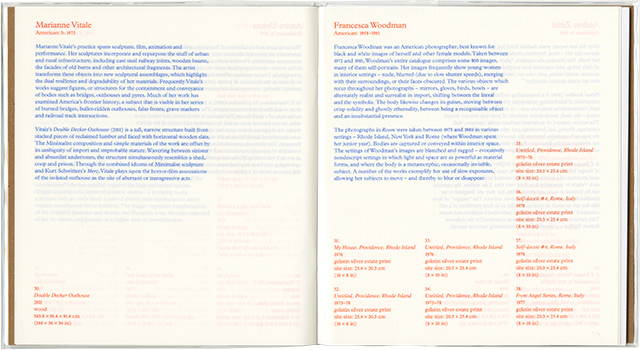 Marianne Vitale
American: b. 1973
Marianne Vitale's practice spans sculpture, film, animation and
performance. Her sculptures incorporate and repurpose the stuff of urban
and rural infrastructure, including cast steel railway joints, wooden beams,
the facades of old barns and other architectural fragments. The artist
transforms these objects into new sculptural assemblages, which highlight
the dual resilience and degradability of her materials. Frequently Vitale's
works suggest figures, or structures for the containment and conveyance
of bodies such as bridges, outhouses and pyres. Much of her work has
examined America's frontier history, a subject that is visible in her series
of burned bridges, bullet-ridden outhouses, false fronts, grave markers
and railroad track intersections.
Vitale's Double Decker Outhouse (2011) is a tall, narrow structure built from
stacked pieces of reclaimed lumber and faced with horizontal wooden slats.
The Minimalist composition and simple materials of the work are offset by
its ambiguity of import and improbable stature. Wavering between sinister
and absurdist undertones, the structure simultaneously resembles a shed,
coop and prison. Through the combined idioms of Minimalist sculpture
and Kurt Schwitters's Merz, Vitale plays upon the horror-film associations
of the isolated outhouse as the site of aberrant or transgressive acts.
30.
Double Decker Outhouse
2011
wood
365.8 × 91.4 × 91.4 cm
(144 × 36 × 36 in)
Francesca Woodman
American: 1958–1981
Francesca Woodman was an American photographer, best known for
black and white images of herself and other female models. Taken between
1972 and 1981, Woodman's entire catalogue comprises some 800 images,
many of them self-portraits. Her images frequently show young women
in interior settings – nude, blurred (due to slow shutter speeds), merging
with their surroundings, or their faces obscured. The various objects which
recur throughout her photographs – mirrors, gloves, birds, bowls – are
alternately realist and surrealist in import, shifting between the literal
and the symbolic. The body likewise changes its guises, moving between
crisp solidity and ghostly ethereality, between being a recognisable object
and an insubstantial presence.
The photographs in Room were taken between 1975 and 1980 in various
settings – Rhode Island, New York and Rome (where Woodman spent
her junior year). Bodies are captured or conveyed within interior space.
The settings of Woodman's images are blanched and rugged – evocatively
nondescript settings in which light and space are as powerful as material
forms, and where the body is a metamorphic, occasionally invisible,
subject. A number of the works exemplify her use of slow exposures,
allowing her subjects to move – and thereby to blur or disappear.
31.
My House, Providence, Rhode Island
1976
gelatin silver estate print
site size: 25.4 × 20.3 cm
(10 × 8 in)
32.
Untitled, Providence, Rhode Island
1975–78
gelatin silver estate print
site size: 25.4 × 20.3 cm
(10 × 8 in)
33.
Untitled, Providence, Rhode Island
1976
gelatin silver estate print
site size: 20.3 × 25.4 cm
(8 × 10 in)
34.
Untitled, Providence, Rhode Island
1975–78
gelatin silver estate print
site size: 20.3 × 25.4 cm
(8 × 10 in)
35.
Untitled, Providence, Rhode Island
1975–78
gelatin silver estate print
site size: 20.3 × 25.4 cm
(8 × 10 in)
36.
Self-deceit #1, Rome, Italy
1978
gelatin silver estate print
site size: 20.3 × 25.4 cm
(8 × 10 in)
37.
Self-deceit #4, Rome, Italy
1978
gelatin silver estate print
site size: 20.3 × 25.4 cm
(8 × 10 in)
38.
From Angel Series, Rome, Italy
1977
gelatin silver estate print
site size: 20.3 × 25.4 cm
(8 × 10 in)